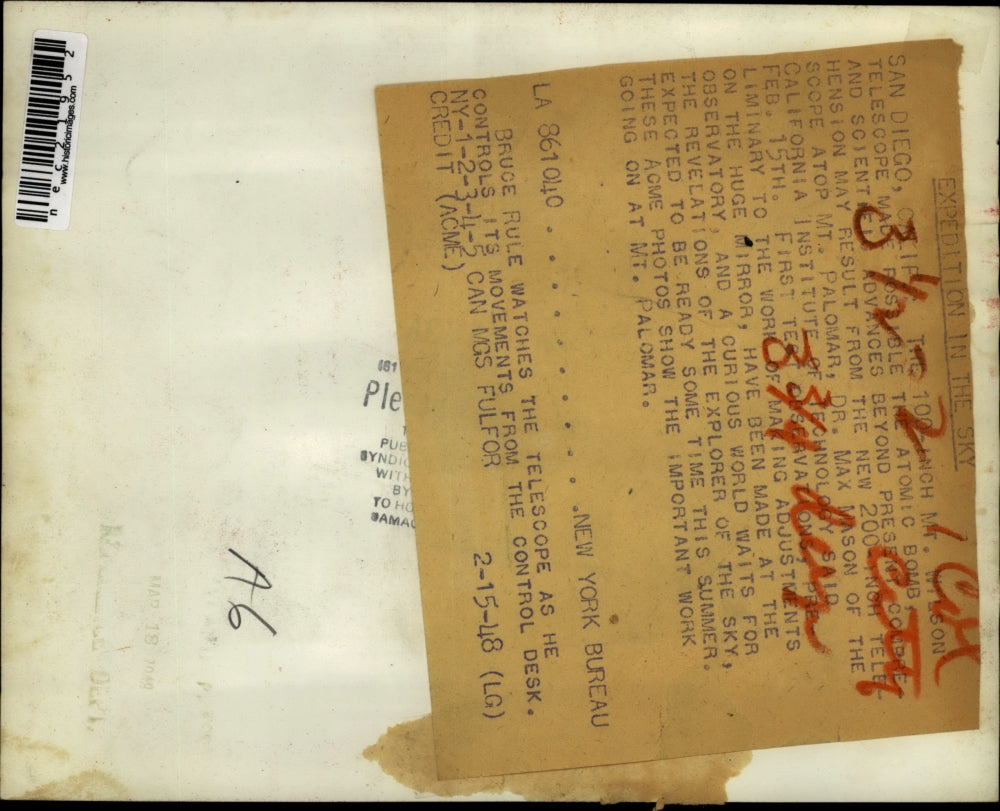 EXPEDITION IN THE SKY
SAN DIEGO, CALIF.... THE 100-INCH MT. WILSON
TELESCOPE MADE POSSIBLE THE ATOMIC BOMB,
AND SCIENTIFIC ADVANCES BEYOND PRESENT COMPRE-
HENSION MAY RESULT FROM THE NEW 200-INCH TELE-
SCOPE ATOP MT. PALOMAR, DR. MAX MASON OF THE
CALIFORNIA INSTITUTE OF TECHNOLOGY SAID
FEB. 15TH. FIRST TEST OBSERVATIONS, PRE-
LIMINARY TO THE WORK OF MAKING ADJUSTMENTS
ON THE HUGE MIRROR, HAVE BEEN MADE AT THE
OBSERVATORY, AND A CURIOUS WORLD WAITS FOR
THE REVELATIONS OF THE EXPLORER OF THE SKY,
EXPECTED TO BE READY SOME TIME THIS SUMMER.
THESE ACME PHOTOS SHOW THE IMPORTANT WORK
GOING ON AT MT. PALOMAR.
LA 861040 . . . . . . . . . . .NEW YORK BUREAU
BRUCE RULE WATCHES THE TELESCOPE AS HE
CONTROLS ITS MOVEMENTS FROM THE CONTROL DESK.
NY-1-2-3-4-5 CAN MGS FULFOR 2-15-48 (LG)
CREDIT (ACME)
3 1/2 - 2
1 Col
3 3/4
A6
Ple
PUB
SYNDIC
WITH
BY
TO HO
DAMAG
www.historicimages.com